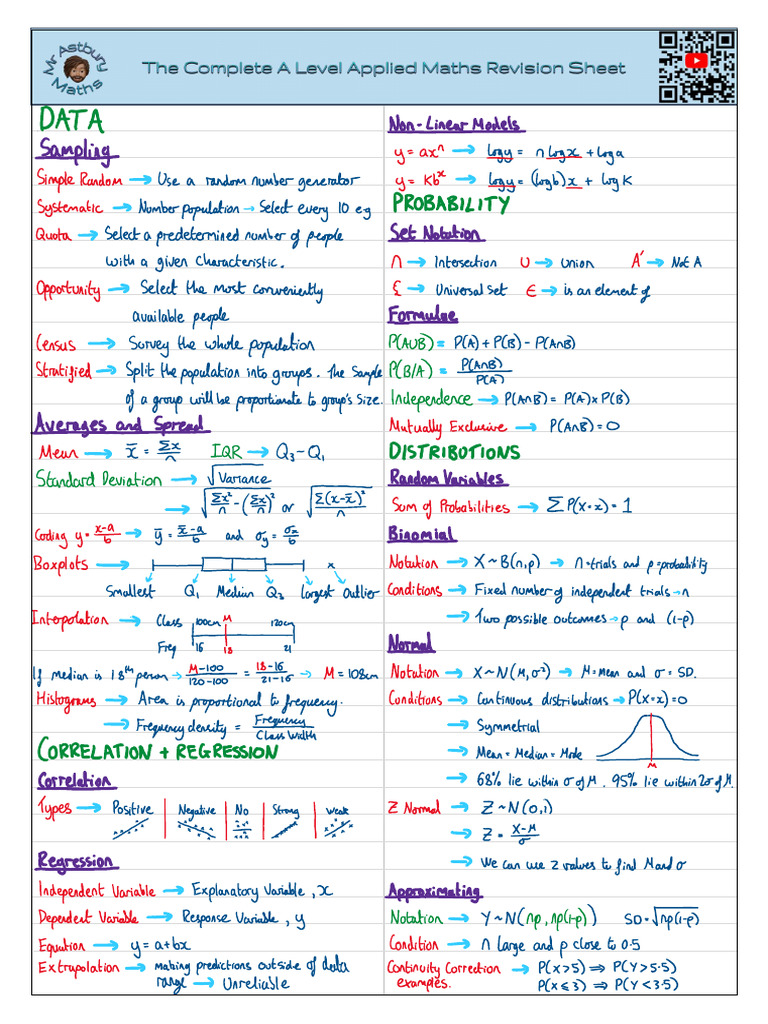 Mr Astbury Maths
The Complete A Level Applied Maths Revision Sheet
DATA
Sampling
Simple Random → Use a random number generator
Systematic → Number population → Select every 10 eg
Quota → Select a predetermined number of people
with a given characteristic.
Opportunity → Select the most conveniently
available people
Census → Survey the whole population
Stratified → Split the population into groups. The sample
of a group will be proportionate to group's size.
Averages and Spread
Mean → x̄ = Σx/n IQR → Q₃ - Q₁
Standard Deviation → √Variance
→ √(Σx²/n - (Σx/n)²) or √(Σ(x-x̄)²/n)
Coding y = (x-a)/b → ȳ = (x̄-a)/b and σy = σx/b
Boxplots → x
Smallest Q₁ Median Q₃ largest outlier
Interpolation → Class 100cm M 120cm
Freq 16 18 21
If median is 18th person → (M-100)/(120-100) = (18-16)/(21-16) → M = 108cm
Histograms → Area is proportional to frequency.
→ Frequency density = Frequency/Class Width
CORRELATION + REGRESSION
Correlation
Types → Positive Negative No Strong weak
Regression
Independent Variable → Explanatory Variable, x
Dependent Variable → Response Variable, y
Equation → y = a+bx
Extrapolation → making predictions outside of data
range → Unreliable
Non-Linear Models
y = axⁿ → logy = nlogx + loga
y = Kbˣ → logy = (logb)x + logK
PROBABILITY
Set Notation
∩ → Intersection ∪ → union A' → Not A
ξ → Universal Set ∈ → is an element of
Formulae
P(A∪B) = P(A) + P(B) - P(A∩B)
P(B/A) = P(A∩B)/P(A)
Independence → P(A∩B) = P(A)×P(B)
Mutually Exclusive → P(A∩B) = 0
DISTRIBUTIONS
Random Variables
Sum of Probabilities → ΣP(X=x) = 1
Binomial
Notation → X~B(n,p) → n=trials and p=probability
Conditions → Fixed number of independent trials → n
→ Two possible outcomes → p and (1-p)
Normal
Notation → X~N(μ,σ²) → μ=mean and σ=SD.
Conditions → Continuous distributions → P(X=x)=0
→ Symmetrical
→ Mean = Median = Mode
μ
→ 68% lie within σ of μ. 95% lie within 2σ of μ.
Z Normal → Z~N(0,1)
→ Z = (X-μ)/σ
→ We can use z values to find μ and σ
Approximating
Notation → Y~N(np, np(1-p)) SD=√np(1-p)
Condition → n large and p close to 0.5
Continuity Correction → P(X>5) ⇒ P(Y>5.5)
examples. P(X≤3) ⇒ P(Y<3.5)